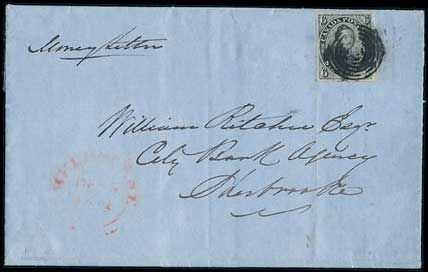 Money Letter
CANADA POST
6
6
William Ritchie Esqr
City Bank Agency
Sherbrooke